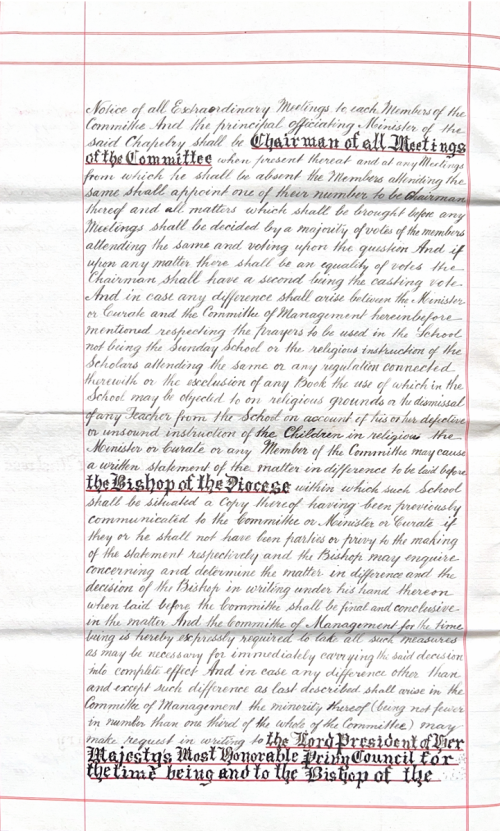 Notice of all Extraordinary Meetings to each Members of the
Committee And the principal officiating Minister of the
said Chapelry shall be Chairman of all Meetings
of the Committee when present thereat and at any Meetings
from which he shall be absent the Members attending the
same shall appoint one of their number to be Chairman
thereof and all matters which shall be brought before any
Meetings shall be decided by a majority of votes of the members
attending the same and voting upon the question And if
upon any matter there shall be an equality of votes the
Chairman shall have a second being the casting vote
And in case any difference shall arise between the Minister
or Curate and the Committee of Management hereinbefore
mentioned respecting the prayers to be used in the School
not being the Sunday School or the religious instruction of the
Scholars attending the same or any regulation connected
therewith or the exclusion of any Book the use of which in the
School may be objected to on religious grounds or the dismissal
of any Teacher from the School on account of his or her defective
or unsound instruction of the Children in religious the
Minister or Curate or any Member of the Committee may cause
a written statement of the matter in difference to be laid before
the Bishop of the Diocese within which such School
shall be situated a Copy thereof having been previously
communicated to the Committee or Minister or Curate if
they or he shall not have been parties or privy to the making
of the statement respectively and the Bishop may enquire
concerning and determine the matter in difference and the
decision of the Bishop in writing under his hand thereon
when laid before the Committee shall be final and conclusive
in the matter And the Committee of Management for the time
being is hereby expressly required to take all such measures
as may be necessary for immediately carrying the said decision
into complete effect And in case any difference other than
and except such difference as last described shall arise in the
Committee of Management the minority thereof (being not fewer
in number than one third of the whole of the Committee) may
make request in writing to the Lord President of Her
Majestys Most Honorable Privy Council for
the time being and to the Bishop of the